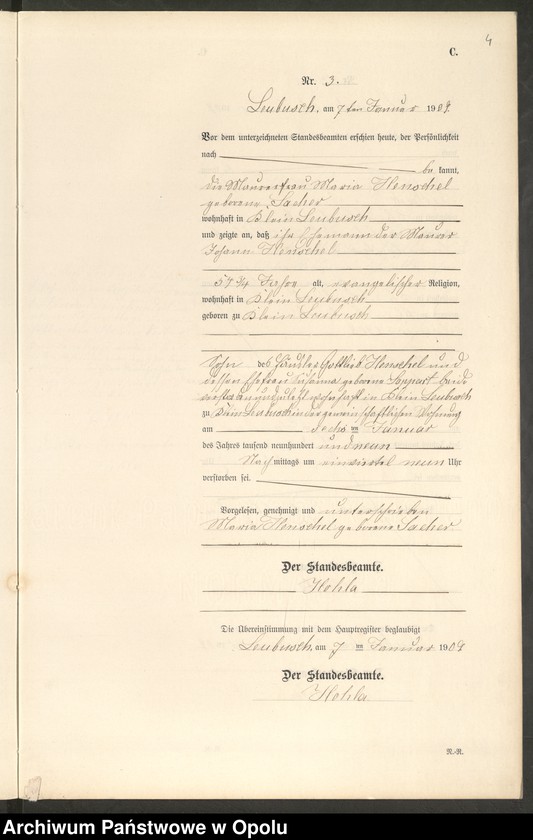 4
C.
Nr. 3.
Leubusch, am 7ten Januar 1909.
Vor dem unterzeichneten Standesbeamten erschien heute, der Persönlichkeit
nach be kannt,
die Maurerfrau Maria Henschel
geborene Sacher
wohnhaft in Klein Leubusch
und zeigte an, daß ihr Ehemann der Maurer
Johann Henschel
57 3/4 Jahre alt, evangelischer Religion,
wohnhaft in Klein Leubusch
geboren zu Klein Leubusch
Sohn des Häusler Gottlieb Henschel und
dessen Ehefrau Susanna geborene beide
verstorben und zuletzt wohnhaft in Klein Leubusch
zu Klein Leubusch in der gemeinschaftlichen Wohnung
am sechsten Januar
des Jahres tausend neunhundert und neun
Nachmittags um einviertel neun Uhr
verstorben sei.
Vorgelesen, genehmigt und unterschrieben
Maria Henschel geborene Sacher
Der Standesbeamte.
Hohla
Die Übereinstimmung mit dem Hauptregister beglaubigt
Leubusch, am 7ten Januar 1909
Der Standesbeamte.
Hohla
N.-R.
Archiwum Państwowe w Opolu